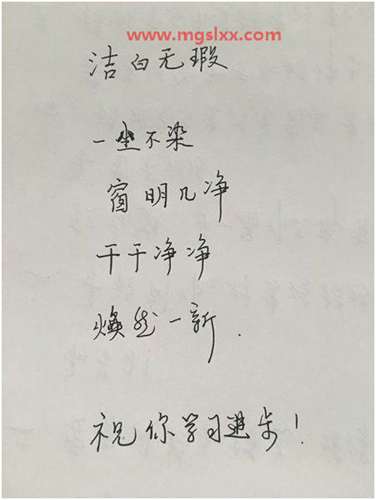 www.mgslxx.com
洁白无瑕
一尘不染
窗明几净
干干净净
焕然一新.
祝你学习进步!